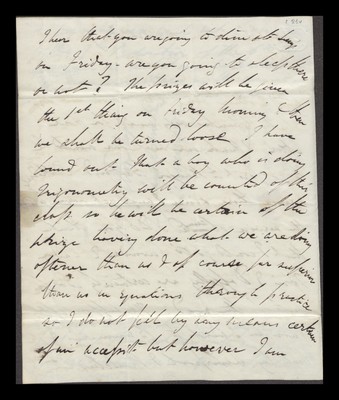 I hear that you are going to dine at
on Friday - are you going to sleep there
or not? The prizes will be given
the 1st thing on Friday morning then
we shall be turned loose I have
found out that a boy who is doing
Trigonometry will be counted of this
class so he will be certain of the
prize having done what we are doing
oftener than us & of course far superior
than us in Equations through practice
so I do not feel by any means certain
of an accessit but however I am